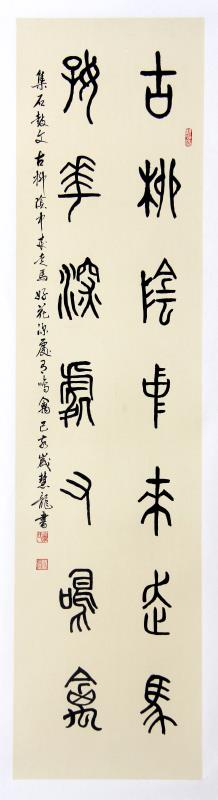 古柳陰中來走馬
好花深處有鳴禽
集石鼓文古柳陰中來走馬好花深處有鳴禽己亥歲慧龍書